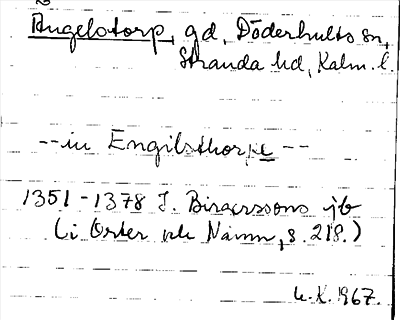 Ängelstorp, gd, Döderhults sn,
Stranda hd, Kalm. l.
-- in Engilsthorpe --
1351-1378 I. Birgerssons jb
(i Orter och Namn, s. 218.)
U.K. 1967.